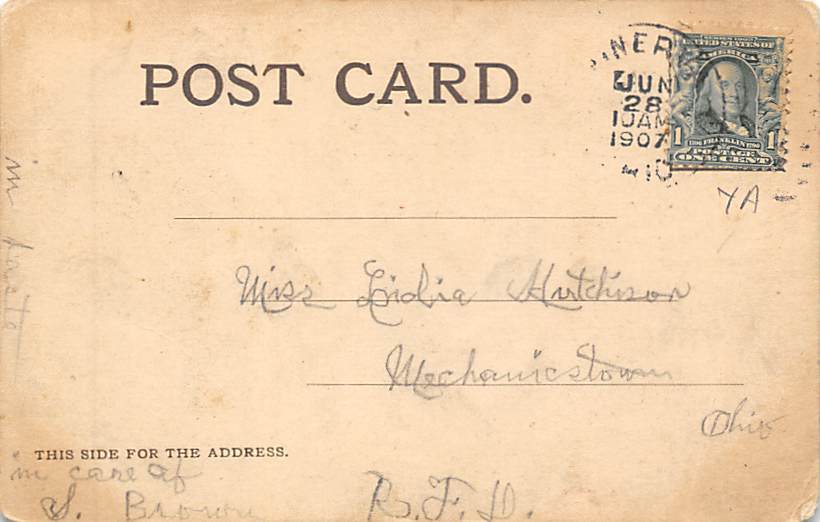 POST CARD.
JUN
28
10AM
1907
SERIES 1902
UNITED STATES OF
AMERICA
1 1706 FRANKLIN 1790 1
POSTAGE
ONE CENT
YA
Miss Lidia Hutchison
Mechanicstown
Ohio
THIS SIDE FOR THE ADDRESS.
in care of
S. Brown
R.F.D.
in